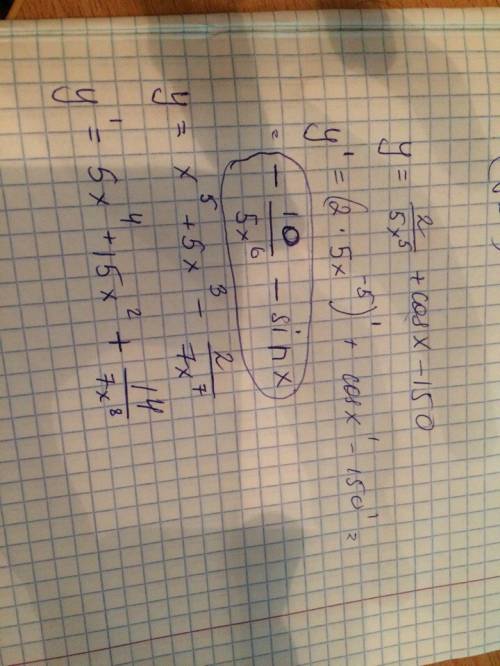 y = 2/5x⁵ + cosx - 150
y' = (2 · 5x⁻⁵)' + cosx' - 150' =
= - 10/5x⁶ - sin x
y = x⁵ + 5x³ - 2/7x⁷
y' = 5x⁴ + 15x² + 14/7x⁸